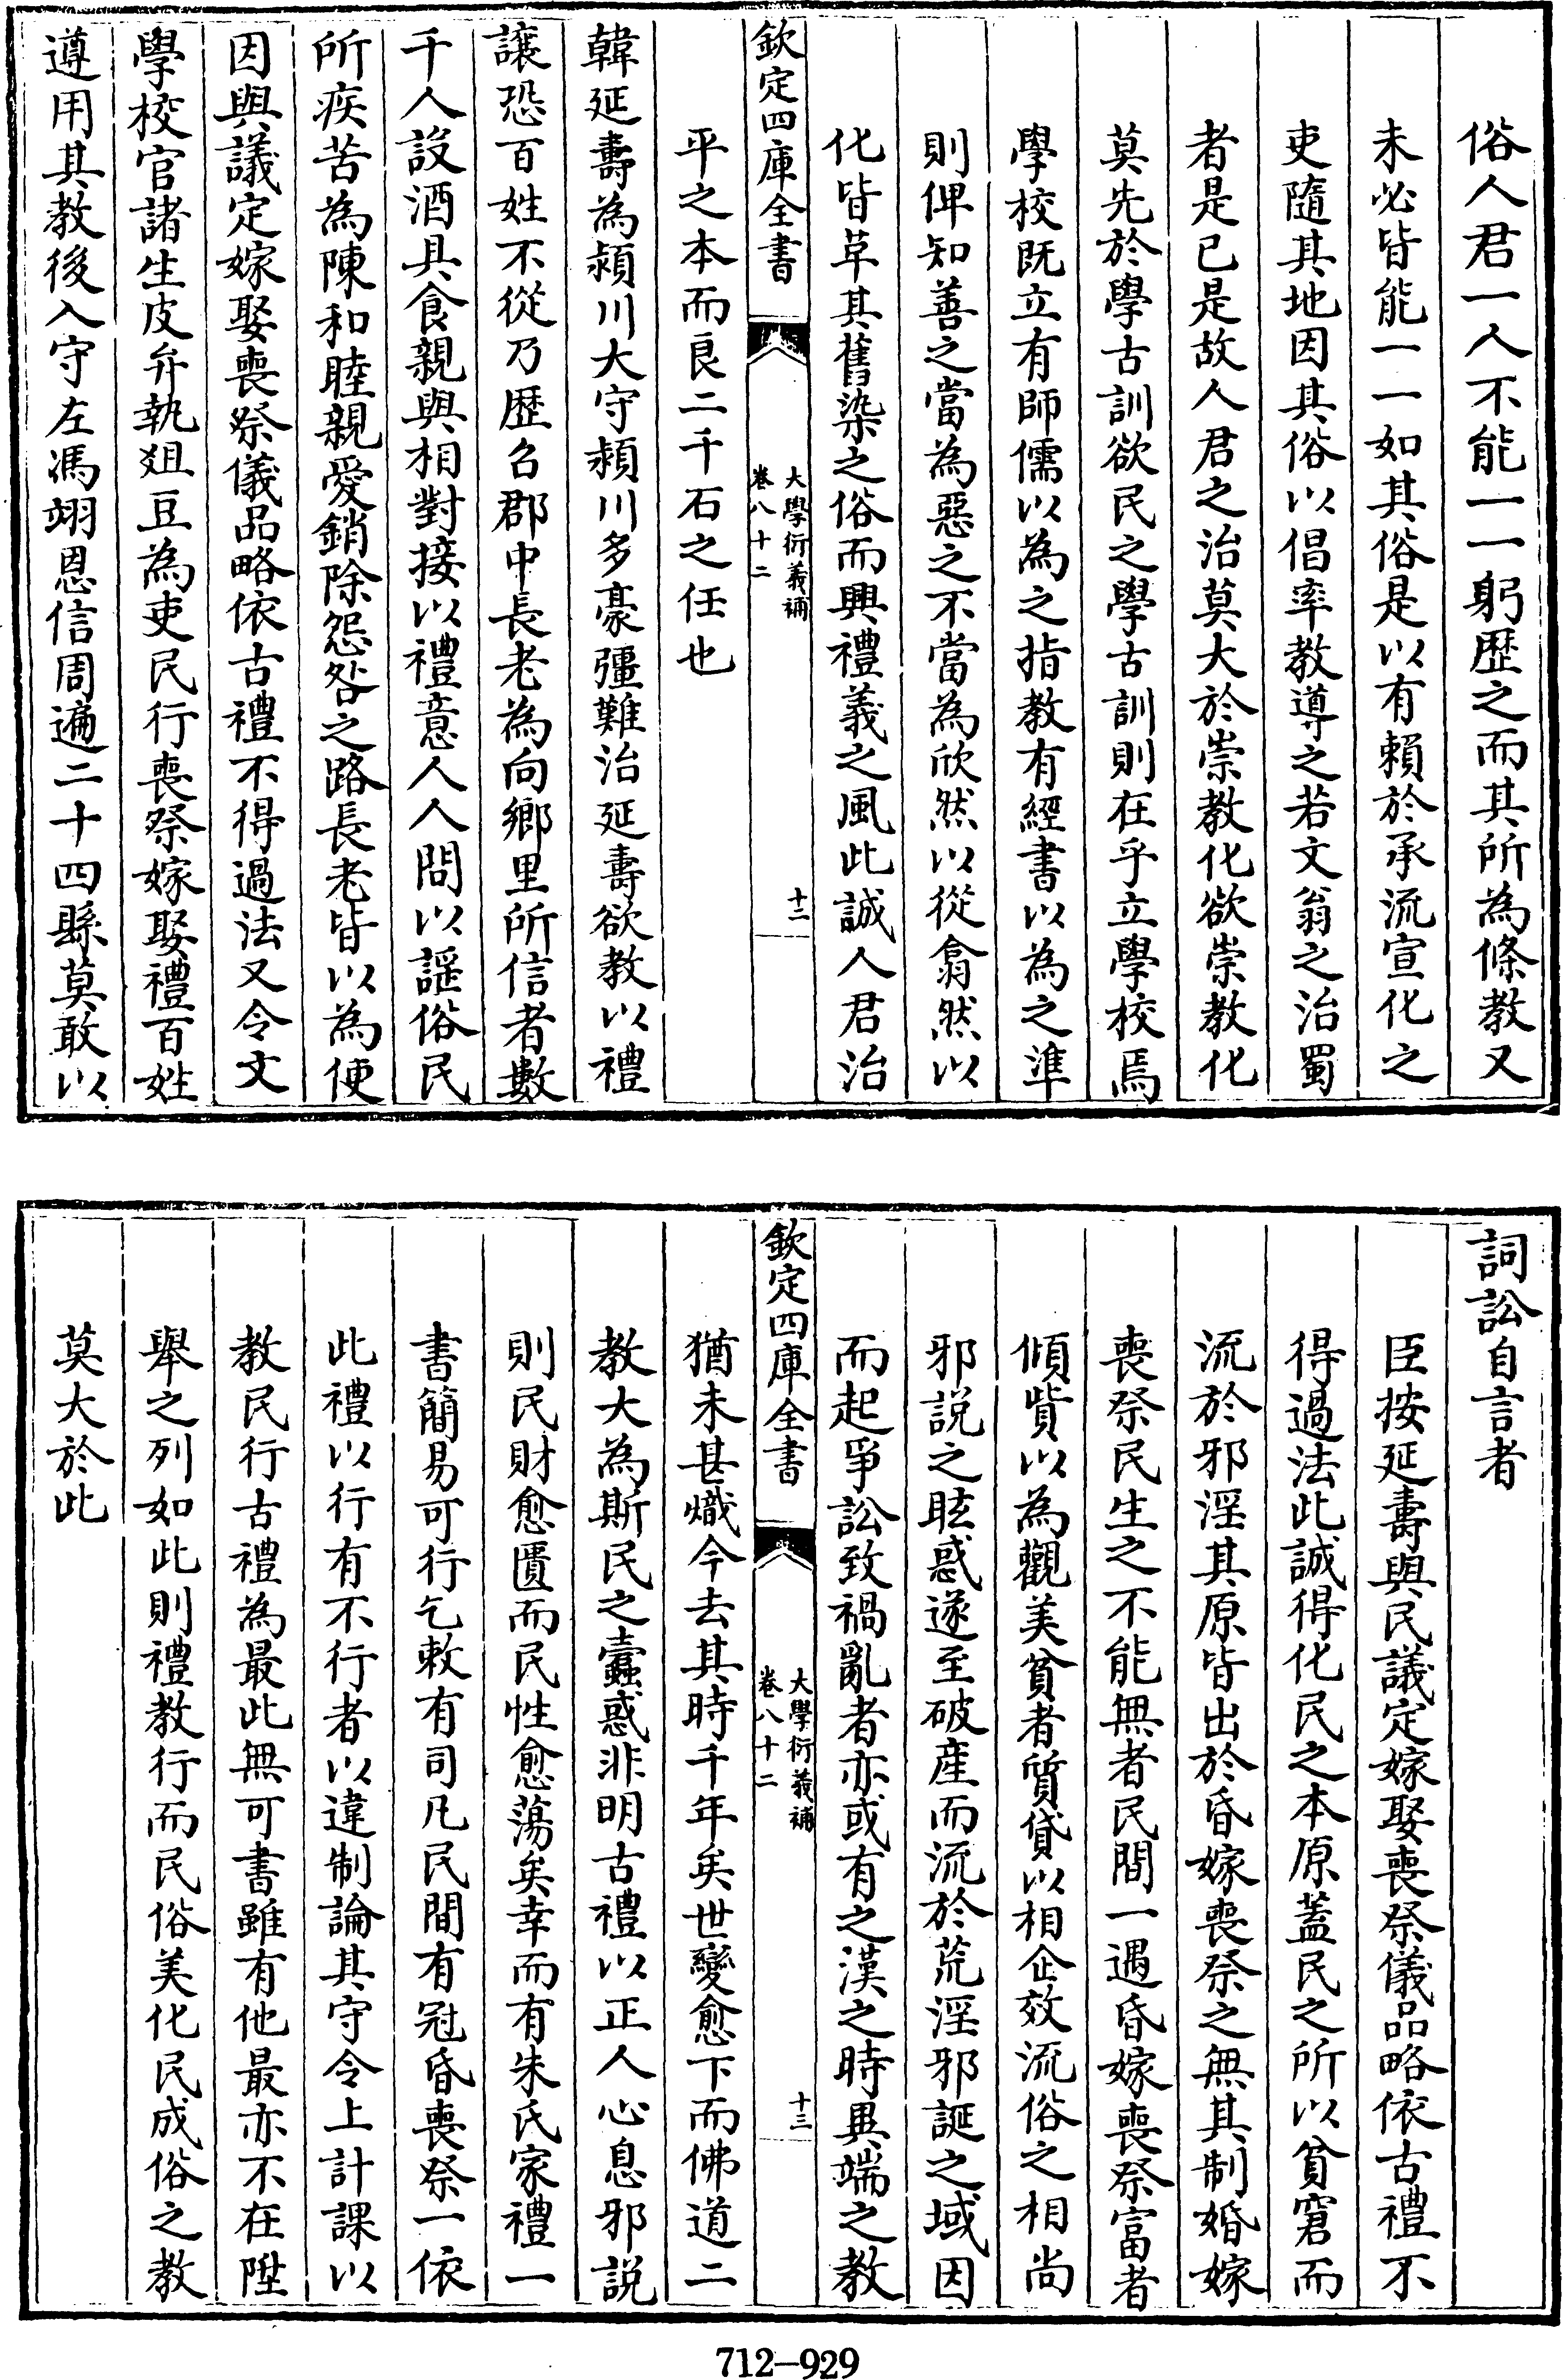 俗人君一人不能一一躬歴之而其所為條教又
未必皆能一一如其俗是以有賴於承流宣化之
吏隨其地因其俗以倡率教導之若文翁之治蜀
者是已是故人君之治莫大於崇教化欲崇教化
莫先於學古訓欲民之學古訓則在乎立學校焉
學校既立有師儒以為之指教有經書以為之準
則俾知善之當為惡之不當為欣然以從翕然以
化皆革其舊染之俗而興禮義之風此誠人君治
欽定四庫全書
大學衍義補
卷八十二
十二
平之本而良二千石之任也
韓延壽為潁川大守潁川多豪彊難治延壽欲教以禮
讓恐百姓不從乃歴召郡中長老為向鄉里所信者數
千人設酒具食親與相對接以禮意人人問以謡俗民
所疾苦為陳和睦親愛銷除怨咎之路長老皆以為便
因與議定嫁娶喪祭儀品略依古禮不得過法又令文
學校官諸生皮弁執俎豆為吏民行喪祭嫁娶禮百姓
遵用其教後入守左馮翊恩信周遍二十四縣莫敢以
詞訟自言者
臣按延壽與民議定嫁娶喪祭儀品略依古禮不
得過法此誠得化民之本原蓋民之所以貧窘而
流於邪淫其原皆出於昏嫁喪祭之無其制婚嫁
喪祭民生之不能無者民間一遇昏嫁喪祭富者
傾貲以為觀美貧者質貸以相企效流俗之相尚
邪説之眩惑遂至破産而流於荒淫邪誕之域因
而起爭訟致禍亂者亦或有之漢之時異端之教
欽定四庫全書
大學衍義補
卷八十二
十三
猶未甚熾今去其時千年矣世變愈下而佛道二
教大為斯民之蠹惑非明古禮以正人心息邪説
則民財愈匱而民性愈蕩矣幸而有朱氏家禮一
書簡易可行乞敕有司凡民間有冠昏喪祭一依
此禮以行有不行者以違制論其守令上計課以
教民行古禮為最此無可書雖有他最亦不在陞
舉之列如此則禮教行而民俗美化民成俗之教
莫大於此
712-929